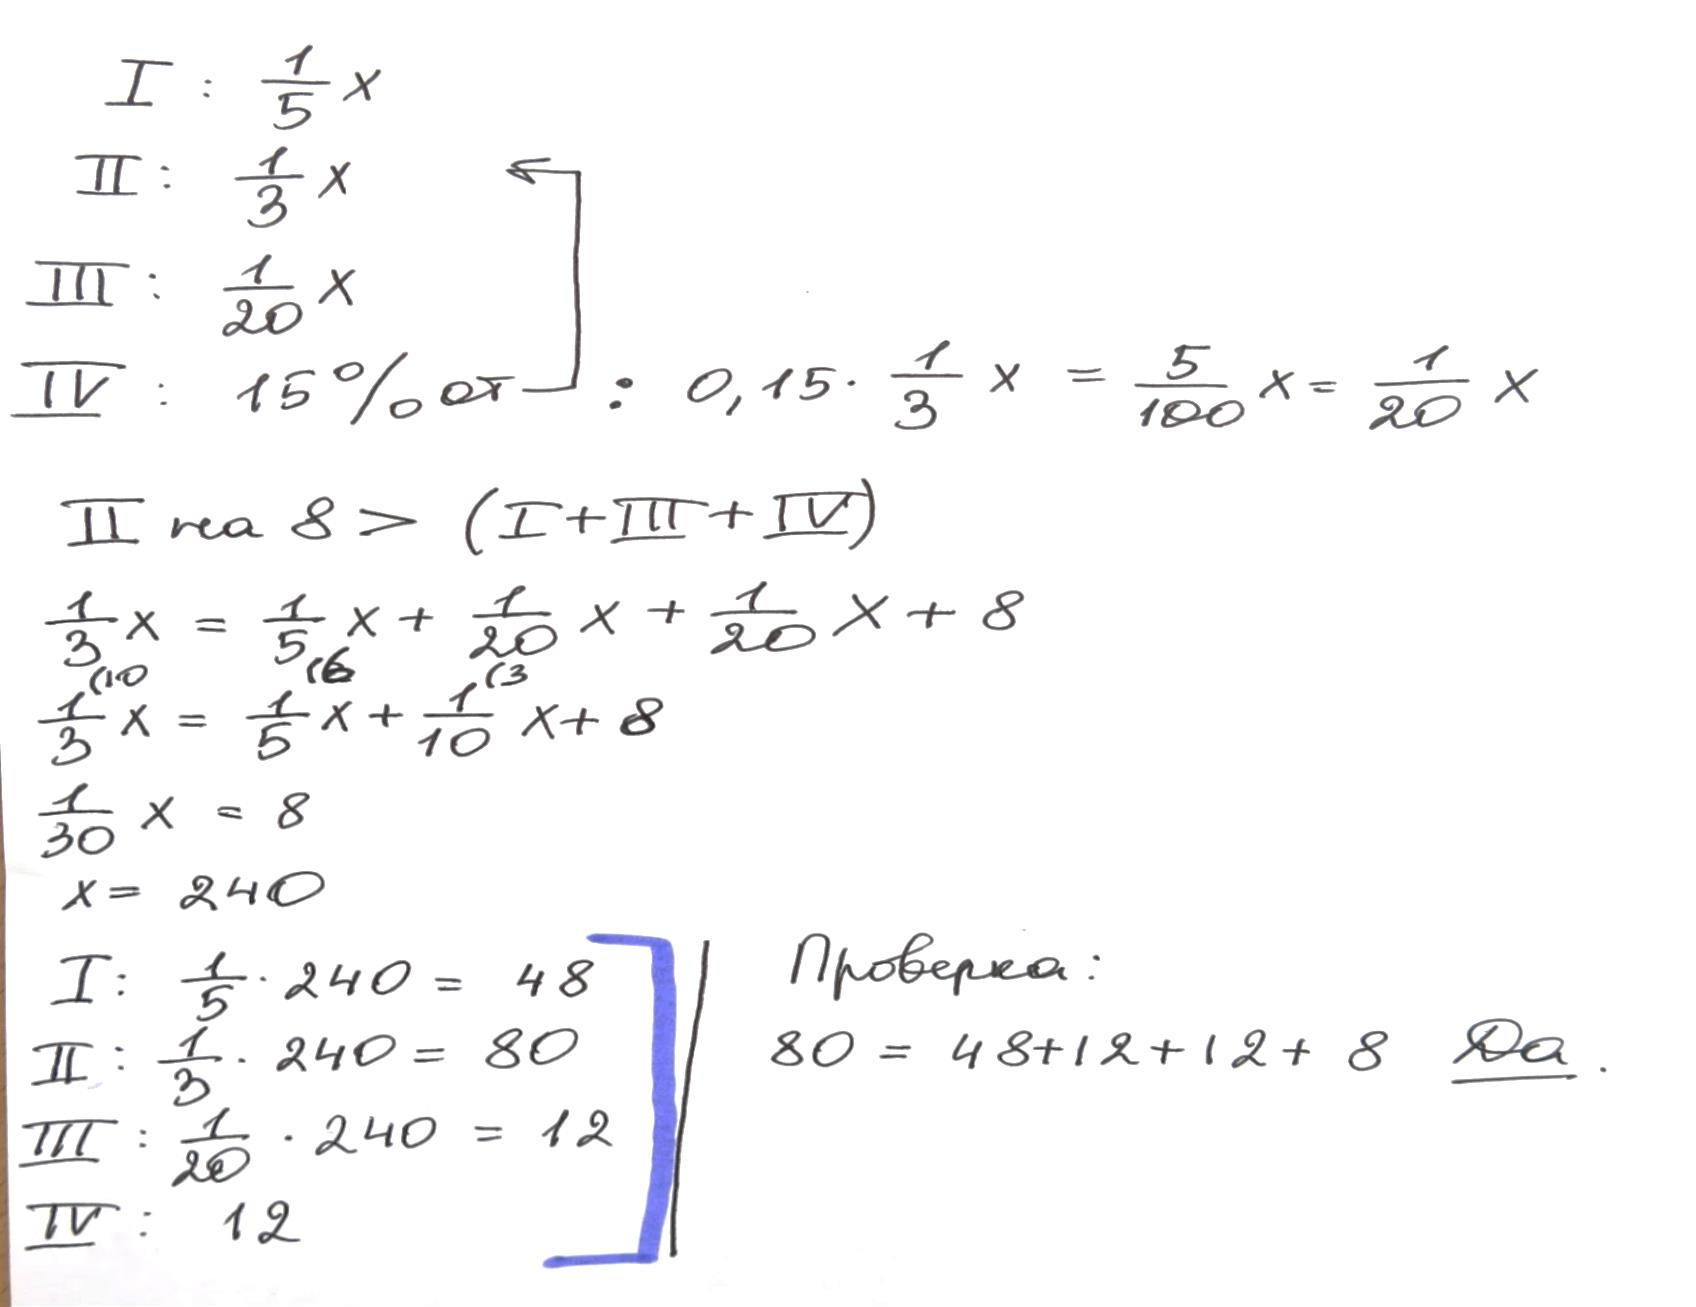 I : 1/5 x
II : 1/3 x
III : 1/20 x
IV : 15% от : 0,15 · 1/3 x = 5/100 x = 1/20 x
II на 8 > (I + III + IV)
1/3 x = 1/5 x + 1/20 x + 1/20 x + 8
(10 (6 (3
1/3 x = 1/5 x + 1/10 x + 8
1/30 x = 8
x = 240
I : 1/5 · 240 = 48
II : 1/3 · 240 = 80
III : 1/20 · 240 = 12
IV : 12
Проверка:
80 = 48+12+12+ 8 Да.